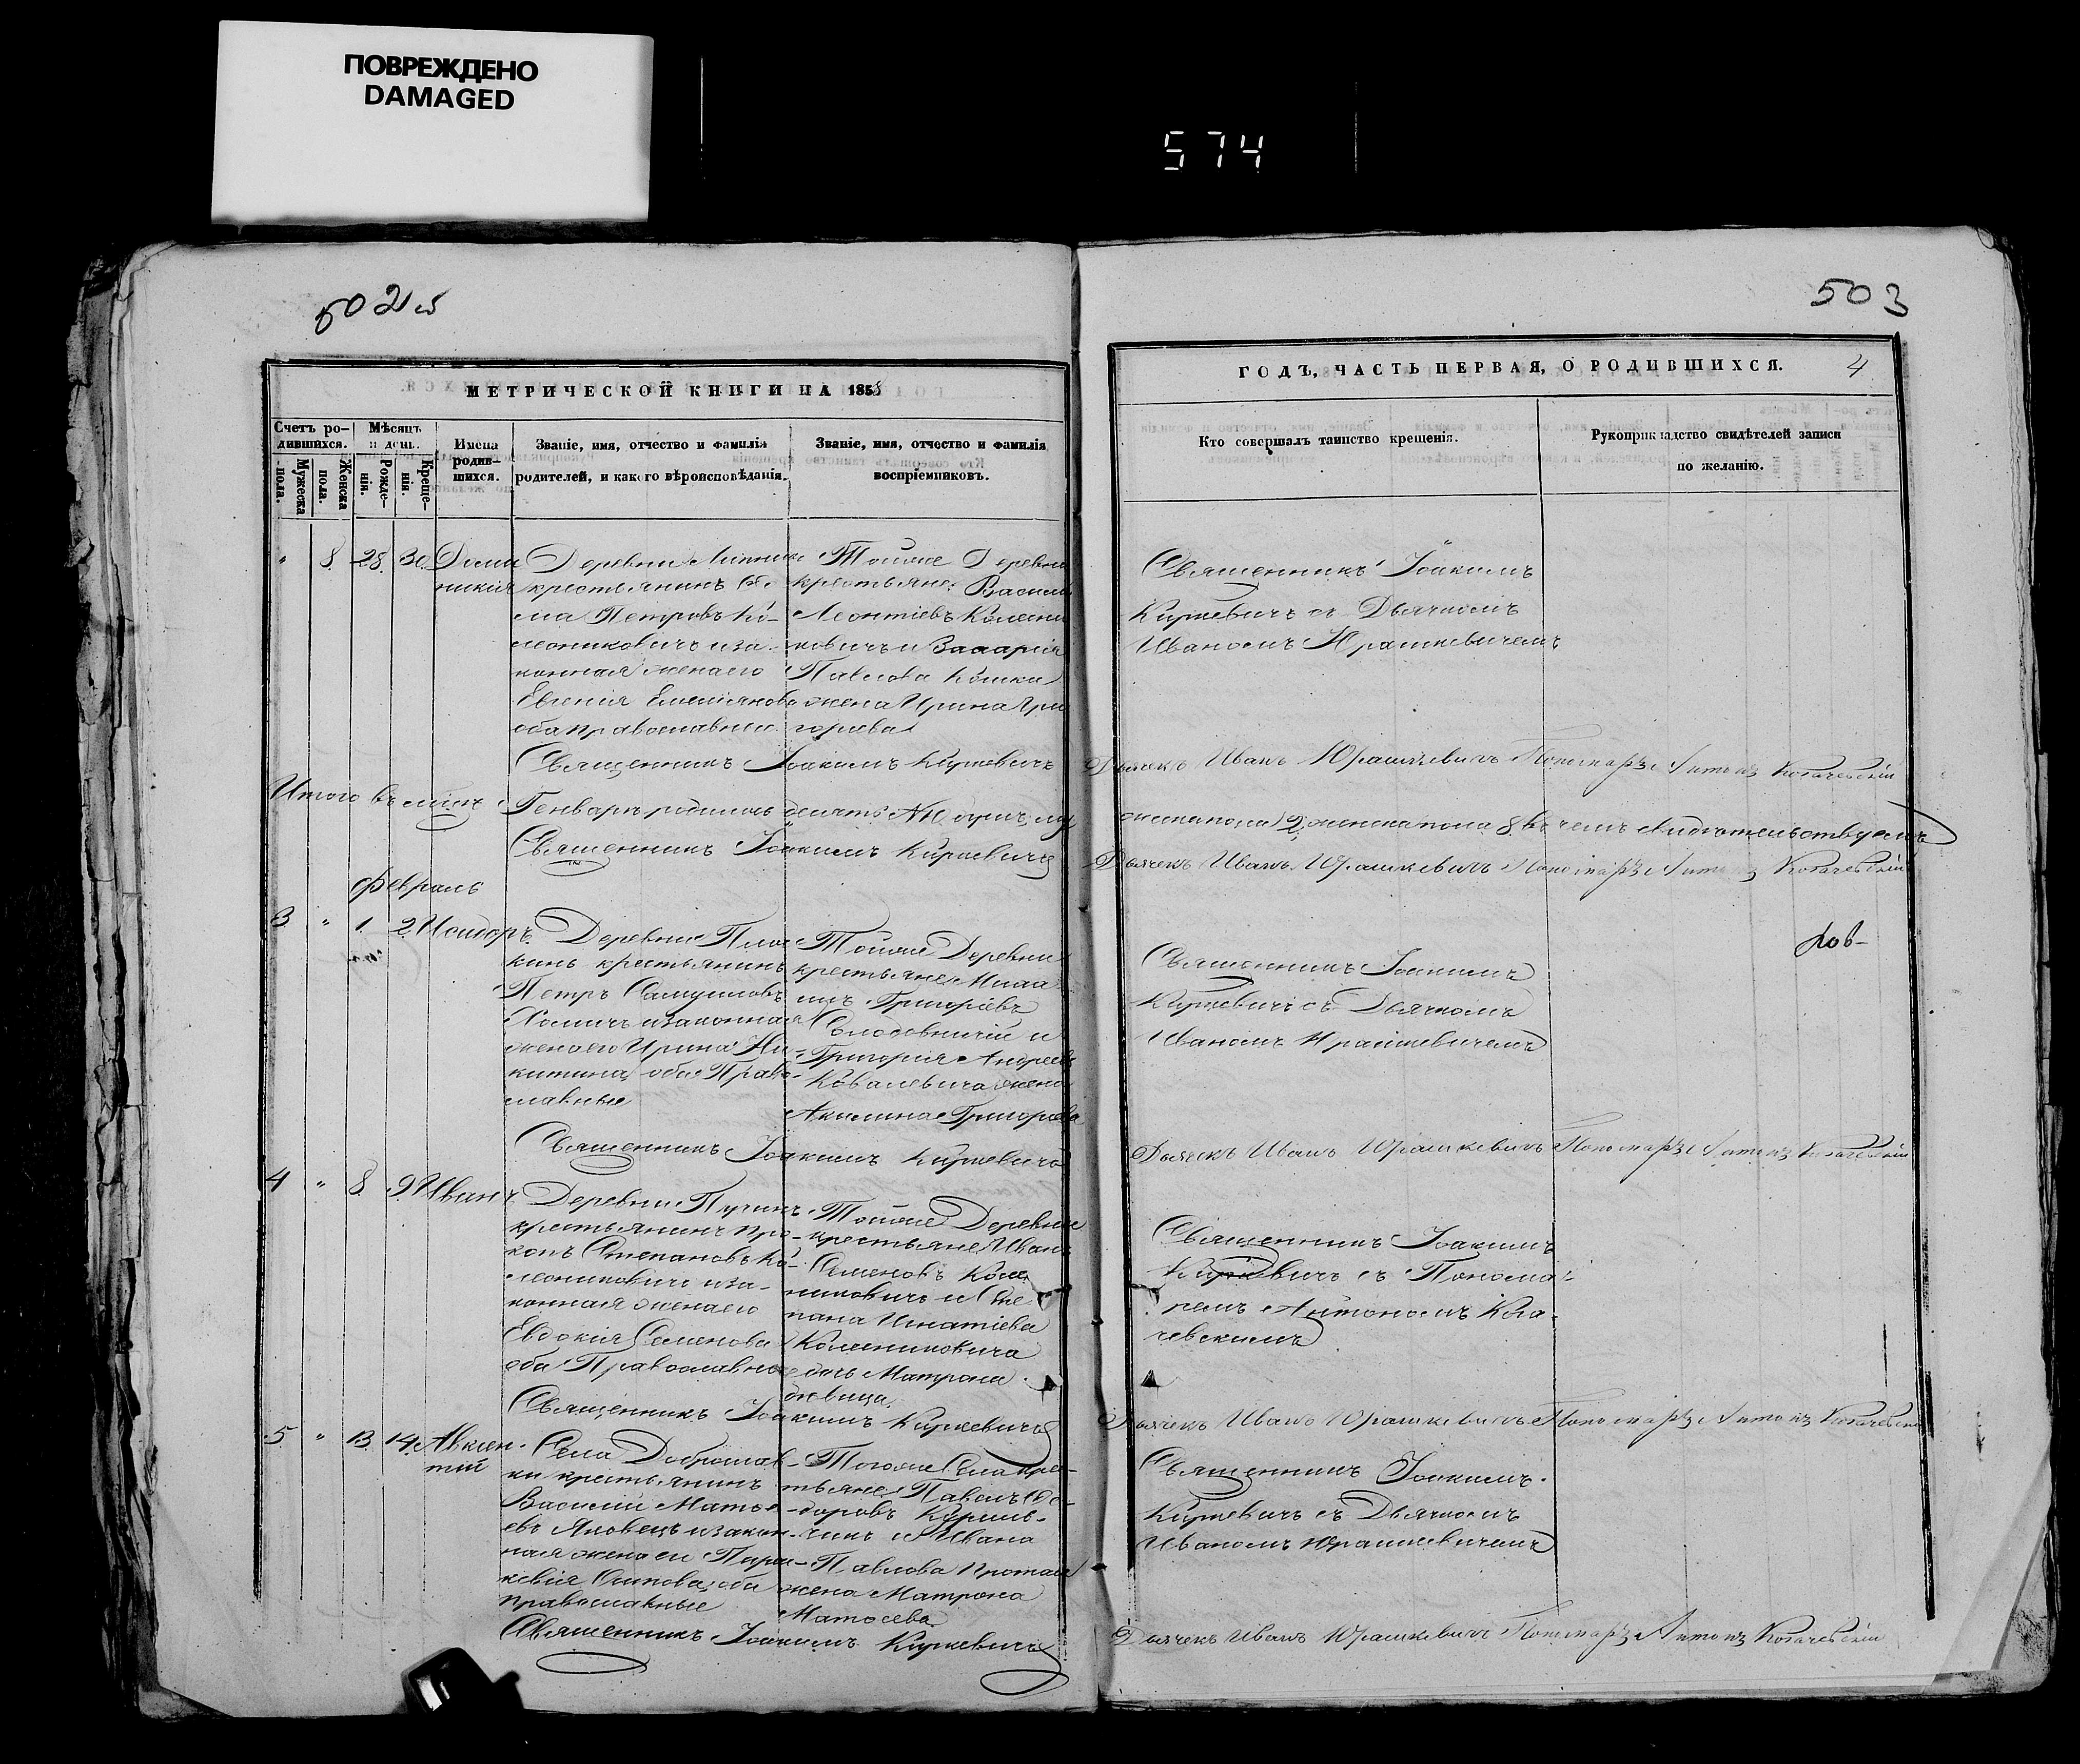 ПОВРЕЖДЕНО
DAMAGED
574
502
503
МЕТРИЧЕСКОЙ КНИГИ НА 1855
ГОДЪ, ЧАСТЬ ПЕРВАЯ, О РОДИВШИХСЯ.
4
Счетъ родившихся.
Мужеска пола.
Женска пола.
Мѣсяцъ и день.
Рожденія.
Крещенія.
Имена родившихся.
Званіе, имя, отчество и фамилія
родителей, и какого вѣроисповѣданія.
Званіе, имя, отчество и фамилія
воспріемниковъ.
Кто совершалъ таинство крещенія.
Рукоприкладство свидѣтелей записи
по желанію.
" 8. 28. 30. Доми
никія
Деревни
крестьянинъ
ма Петровъ Ко-
лѣсниковичъ и за-
конная жена его
Евгенія Емеліянова
оба православные
Тойже Деревни
крестьяне: Василій
Леонтіевъ Колѣсни
ковичъ и Захарія
Павлова
жена Ирина Гри
горіева
Священникъ Іоакимъ
Киркевичъ съ Дьячкомъ
Иваномъ Юрашкевичемъ
Священникъ Іоакимъ Киркевичъ
Дьячекъ Иванъ Юрашкевичъ Пономарь Антонъ
Итого въ мѣсяцѣ Генварѣ родилось десять № 10 душъ, му
жеска пола 2, женска пола 8, въ чемъ свидѣтельствуемъ
Священникъ Іоакимъ Киркевичъ
Дьячекъ Иванъ Юрашкевичъ Пономарь Антонъ
Февраль
3 " 1. 2. Исидоръ
Деревни
крестьянинъ
Петръ Самуиловъ
Хомичъ и законная
жена его Ирина Ни-
китина, оба Право-
славные
Тойже Деревни
крестьяне: Миха
илъ Григоріевъ
и
Григорія Андреева
Ковалевича жена
Акилина Григорьева
Священникъ Іоакимъ
Киркевичъ съ Дьячкомъ
Иваномъ Юрашкевичемъ
Священникъ Іоакимъ Киркевичъ
Дьячекъ Иванъ Юрашкевичъ Пономарь Антонъ
4 " 8. 9. Иванъ
Деревни
крестьянинъ Про-
копъ Степановъ Ко-
лѣсниковичъ и за-
конная жена его
Евдокія Семенова
оба Православные
Тойже Деревни
крестьяне: Иванъ
Семеновъ Колѣс
никовичъ и Сте
пана Игнатіева
Колѣсниковича
дочь Матрона
дѣвица.
Священникъ Іоакимъ
Киркевичъ съ Понома-
ремъ Антономъ
Священникъ Іоакимъ Киркевичъ
Дьячекъ Иванъ Юрашкевичъ Пономарь Антонъ
5. " 13. 14. Авксен-
тій
Села Доброслав-
ки крестьянинъ
Василій Матѳе-
евъ Яковецъ и закон-
ная жена его Пара-
скевія Осипова, оба
православные
Тогоже Села кре-
стьяне: Павелъ Ѳео-
доровъ
и Ивана
Павлова
жена Матрона
Матѳеева
Священникъ Іоакимъ
Киркевичъ съ Дьячкомъ
Иваномъ Юрашкевичемъ
Священникъ Іоакимъ Киркевичъ
Дьячекъ Иванъ Юрашкевичъ Пономарь Антонъ